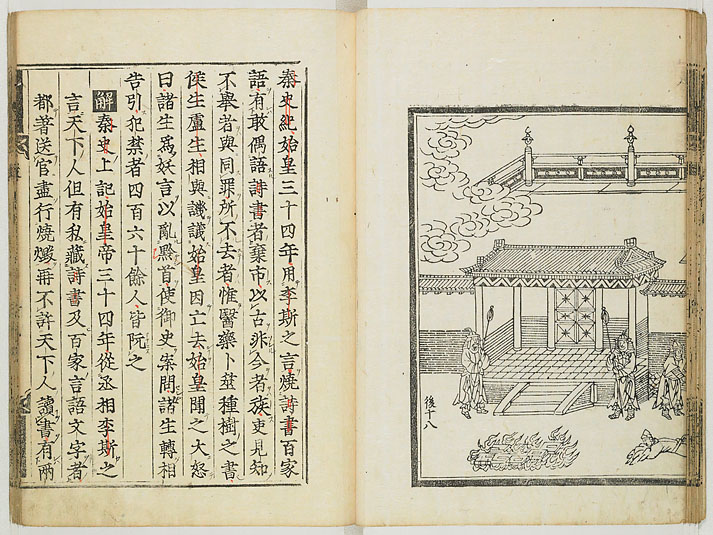 後十八
秦史紀始皇三十四年用李斯之言燒詩書百家
語有敢偶語詩書者棄市以古非今者族吏見知
不舉者與同罪所不去者惟醫藥卜筮種樹之書
侯生盧生相與譏議始皇因亡去始皇聞之大怒
曰諸生爲妖言以亂黔首使御史案問諸生轉相
告引犯禁者四百六十餘人皆阬之
解 秦史上記始皇帝三十四年從丞相李斯之
言天下人但有私藏詩書及百家言語文字者
都著送官盡行燒燬再不許天下人讀書有兩